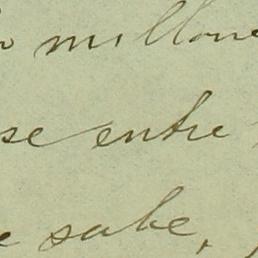 millone
se entre
e sabe,